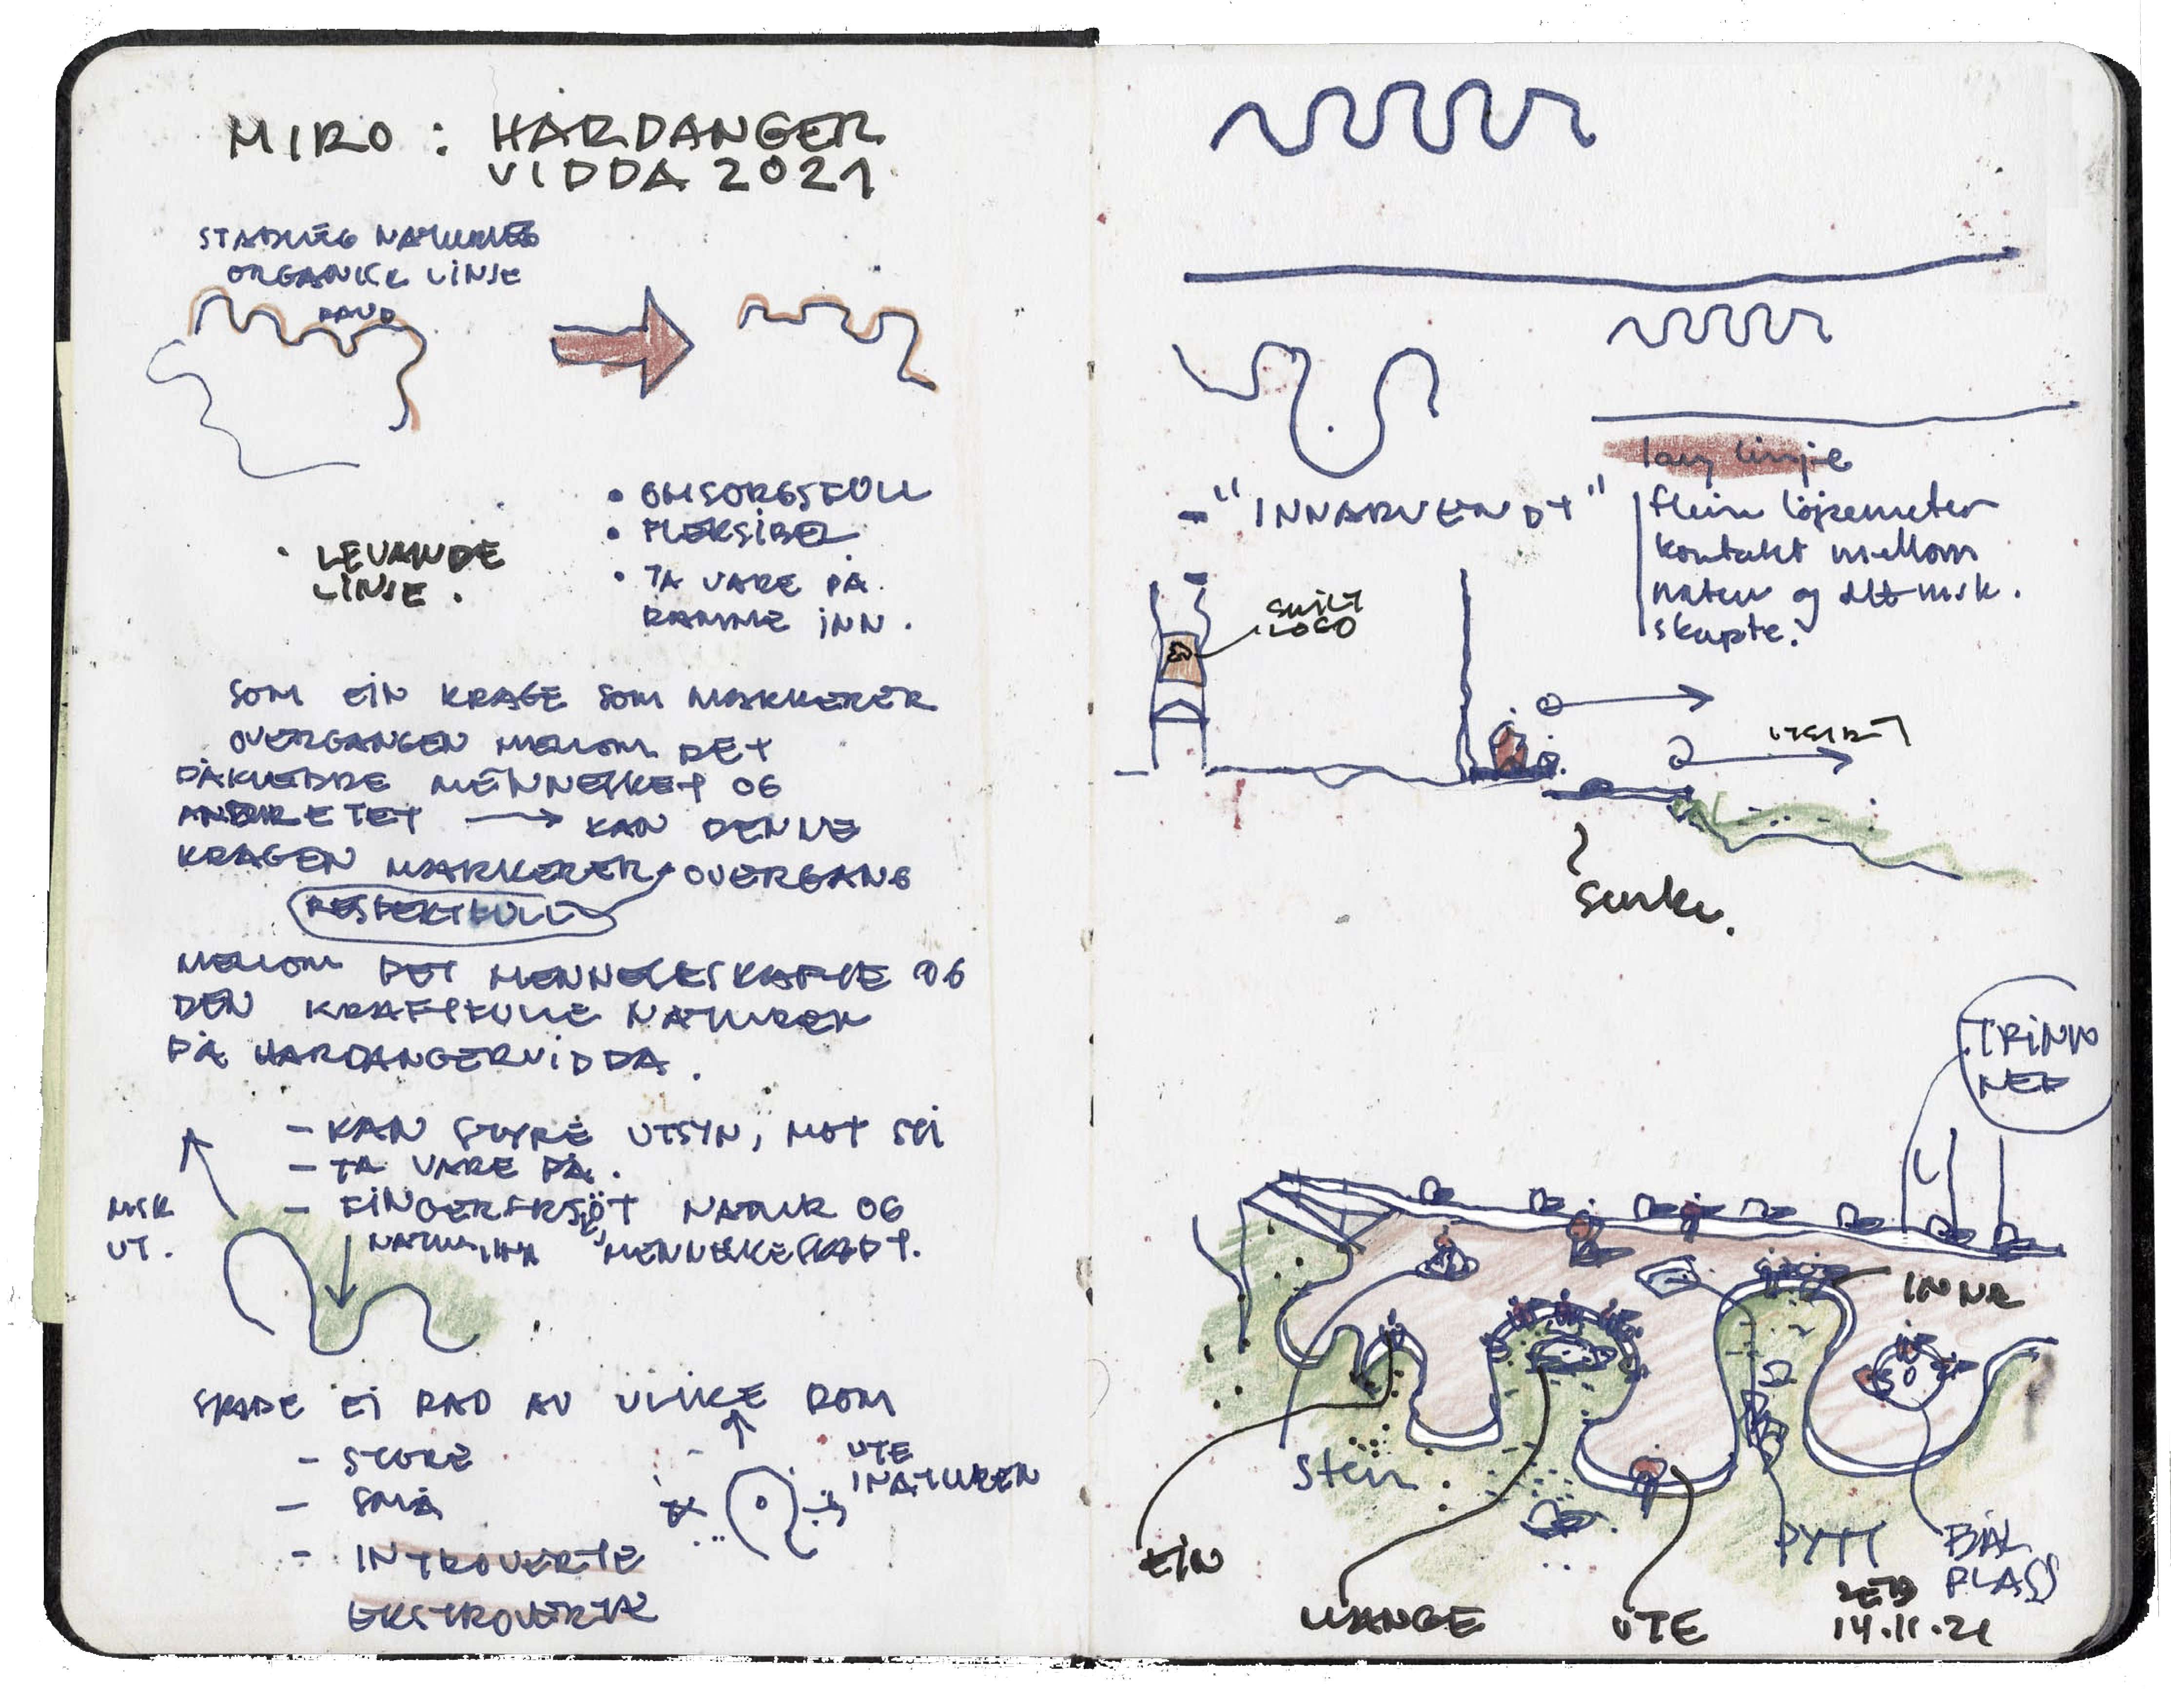 MIRO : HARDANGER
VIDDA 2021
ORGANISK LINJE
• OMSORGSFULL
• FLEKSIBEL
• TA VARE PÅ.
RAMME INN.
• LEVANDE
LINJE.
SOM EIN KRAGE SOM MARKERER
OVERGANGEN MELLOM DET
PÅKLEDDE MENNESKET OG
ANDRETET → KAN DENNE
KRAGEN MARKERER OVERGANG
RESPEKTFULL
MELLOM DET MENNESKESKAPTE OG
DEN KRAFTFULLE NATUREN
PÅ HARDANGERVIDDA.
- KAN STYRE UTSYN, MOT SEI
- TA VARE PÅ.
- FINGERFKSJØT NATUR OG
NATUR INN MENNESKESKAPT.
MSK
UT.
SKAPE EI RAD AV ULIKE ROM
- STORE
- SMÅ
- INTROVERTE
EKSTROVERTE
UTE
I NATUREN
- "INNADVENDT"
lang linje
fleire løpemeter
kontakt mellom
natur og det msk.
skapte.
SKILT
LOGO
UTSIKT
Senke.
TRINN
NED
INNE
Stein
EIN
MANGE
UTE
PYTT
BÅL
PLASS
14.11.21